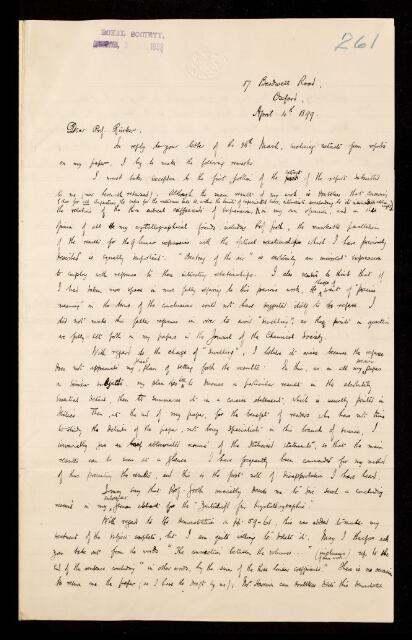 ROYAL SOCIETY.
261
17 Bardwell Road,
Oxford.
April 4th 1899.
Dear Prof. Rücker,
In reply to your letter of the 28th March, enclosing extracts from reports
on my paper, I beg to make the following remarks.
I must take exception to the first portion of the extract of the report submitted
to me (now herewith returned). Although the main result of my work is doubtless that
the relation of the three cubical coefficients of expansion, in my own opinion, and in the
opinion of all my crystallographical friends, including Prof. Groth, the remarkable parallelism
of the results for the linear expansions with the optical relationships which I have previously
described is equally important. "Beating of the air" is certainly an unmerited expression
to employ with reference to these interesting relationships. I also venture to think that if
I had taken more space in more fully referring to this previous work, the charge of want of "precise
meaning" in the terms of the conclusions would not have suggested itself to the referee. I
did not make this fuller reference in order to avoid "swelling", as they points in question
are fully set forth in my papers in the Journal of the Chemical Society.
With regard to the charge of "swelling", I believe it arises because the referee
does not appreciate my plan of setting forth the results. In this, as in all my previous papers
on similar subjects, my plan is to discuss a particular result in the absolutely
essential detail, then to announce it in a concise statement, which is usually printed in
italics. Then, at the end of my paper, for the benefit of readers who have not time
to study the details of the paper, not being specialists in this branch of science, I
invariably give an abbreviated résumé of the italicised statements, so that the main
results can be seen at a glance. I have frequently been commended for my method
of thus presenting the results, and this is the first note of disapprobation I have heard.
I may say that Prof. Groth invariably desires me to give such a concluding
résumé in my German abstract for the "Zeitschrift für Krystallographie".
With regard to the demonstration on pp. 59-61, this was added to make my
treatment of the subject complete, but I am quite willing to delete it. May I therefore ask
you to take out from the words "The connection between the volumes..." up to the
end of the sentence concluding "in other words, by the sum of the three linear coefficients". There is no occasion
to return me the paper, (as I have the draft by me). Mr. Harrison can doubtless delete this demonstration